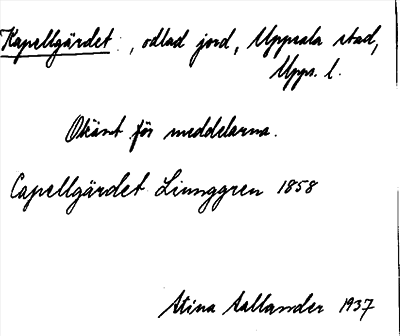 Kapellgärdet:, odlad jord, Uppsala stad,
Upps. l.
Okänt för meddelarna.
Capellgärdet Liunggren 1858
Stina Aallander 1937